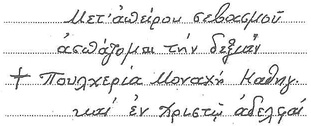 Μετ' ἀπείρου σεβασμοῦ
ἀσπάζομαι τὴν δεξιάν
† Πουλχερία Μοναχή Καθηγ.
καί ἐν Χριστῷ ἀδελφαί